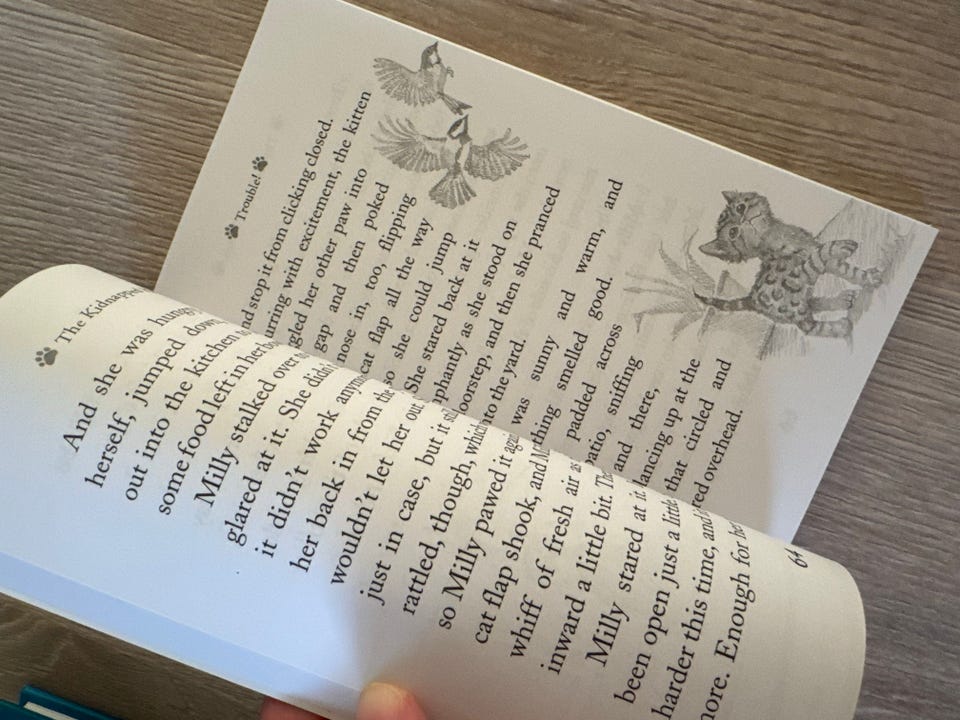 The Kidnapped
And she was hungry
herself, jumped down
out into the kitchen
some food left in her
Milly stalked over
glared at it. She didn't
it didn't work anym
her back in from the
wouldn't let her out
just in case, but it
rattled, though, which
so Milly pawed it again
cat flap shook, and
whiff of fresh air as
inward a little bit. The
Milly stared at it
been open just a little
harder this time, and
more. Enough for her
64
Trouble!
and stop it from clicking closed.
urring with excitement, the kitten
gled her other paw into
gap and then poked
nose in, too, flipping
cat flap all the way
so she could jump
She started back at it
mphantly as she stood on
doorstep, and then she pranced
into the yard.
was sunny and warm, and
thing smelled good.
padded across
patio, sniffing
and there,
dancing up at the
that circled and
red overhead.